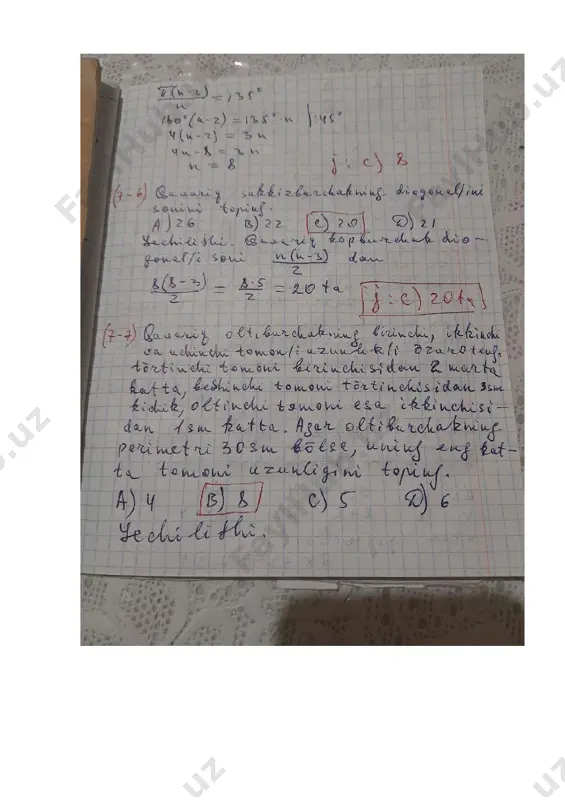 π(n-2)/n = 135°
180°(n-2) = 135°·n | :45°
4(n-2) = 3n
4n-8 = 3n
n = 8
j: c) 8
(7-6) Qavariq sakkizburchakning diogonallini
sonini toping.
A) 26 B) 22 C) 20 D) 21
Yechilishi. Qavariq kopburchak dio-
gonalli soni n(n-3)/2 dan
8(8-3)/2 = 8·5/2 = 20 ta
j: c) 20 ta
(7-7) Qavariq oltiburchakning birinchi, ikkinchi
va uchinchi tomonli uzunlukli õzaro teng.
tõrtinchi tomoni birinchisidan 2 marta
katta, beshinchi tomoni tõrtinchisidan 3sm
kichik, oltinchi tomoni esa ikkinchisi-
dan 1sm katta. Agar oltiburchakning
perimetri 30sm bõlsa, uning eng kat-
ta tomoni uzunligini toping.
A) 4 B) 8 C) 5 D) 6
Yechilishi.
FaylHub.uz
FaylHub.uz
b.uz
FaylHub.uz
uz
uz